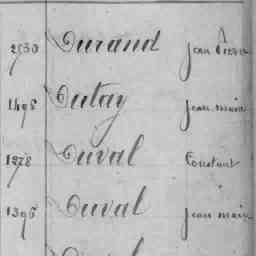 2530 Durand Jean Pierre
1498 Dutay Jean Marie
1278 Duval Constant
1396 Duval Jean Marie